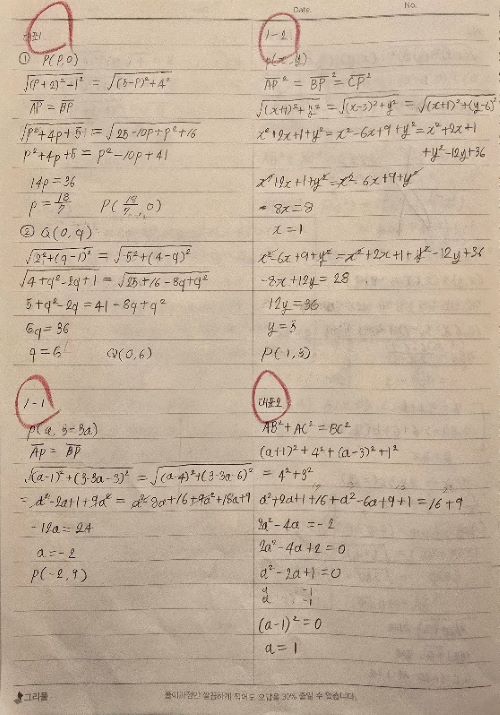 Date.
No.
대표1.
① P(P,0)
√(P+2)²-1² = √(5-P)²+4²
AP = BP
√P²+4P+5 = √25-10P+P²+16
P²+4P+5 = P²-10P+41
14P=36
P = 18/7   P(18/7, 0)
② Q(0,q)
√2²+(q-1)² = √5²+(4-q)²
√4+q²-2q+1 = √25+16-8q+q²
5+q²-2q = 41-8q+q²
6q=36
q=6   Q(0,6)
1-1
P(a, 3-3a)
AP = BP
√(a-1)²+(3-3a-3)² = √(a-4)²+(3-3a-6)²
= a²-2a+1+9a² = a²-8a+16+9a²+18a+9
-12a=24
a=-2
P(-2,9)
1-2
P(x,y)
AP² = BP² = CP²
√(x+1)²+y² = √(x-3)²+y² = √(x+1)²+(y-6)²
x²+2x+1+y² = x²-6x+9+y² = x²+2x+1
+y²-12y+36
x²+2x+1+y² = x²-6x+9+y²
8x=8
x=1
x²-6x+9+y² = x²+2x+1+y²-12y+36
-8x+12y=28
12y=36
y=3
P(1,3)
대표2
AB²+AC²=BC²
(a+1)²+4²+(a-3)²+1²
=4²+3²
a²+2a+1+16+a²-6a+9+1=16+9
2a²-4a=-2
2a²-4a+2=0
a²-2a+1=0
a -1
a -1
(a-1)²=0
a=1
그리풀
풀이과정만 깔끔하게 적어도 오답을 30% 줄일 수 있습니다.